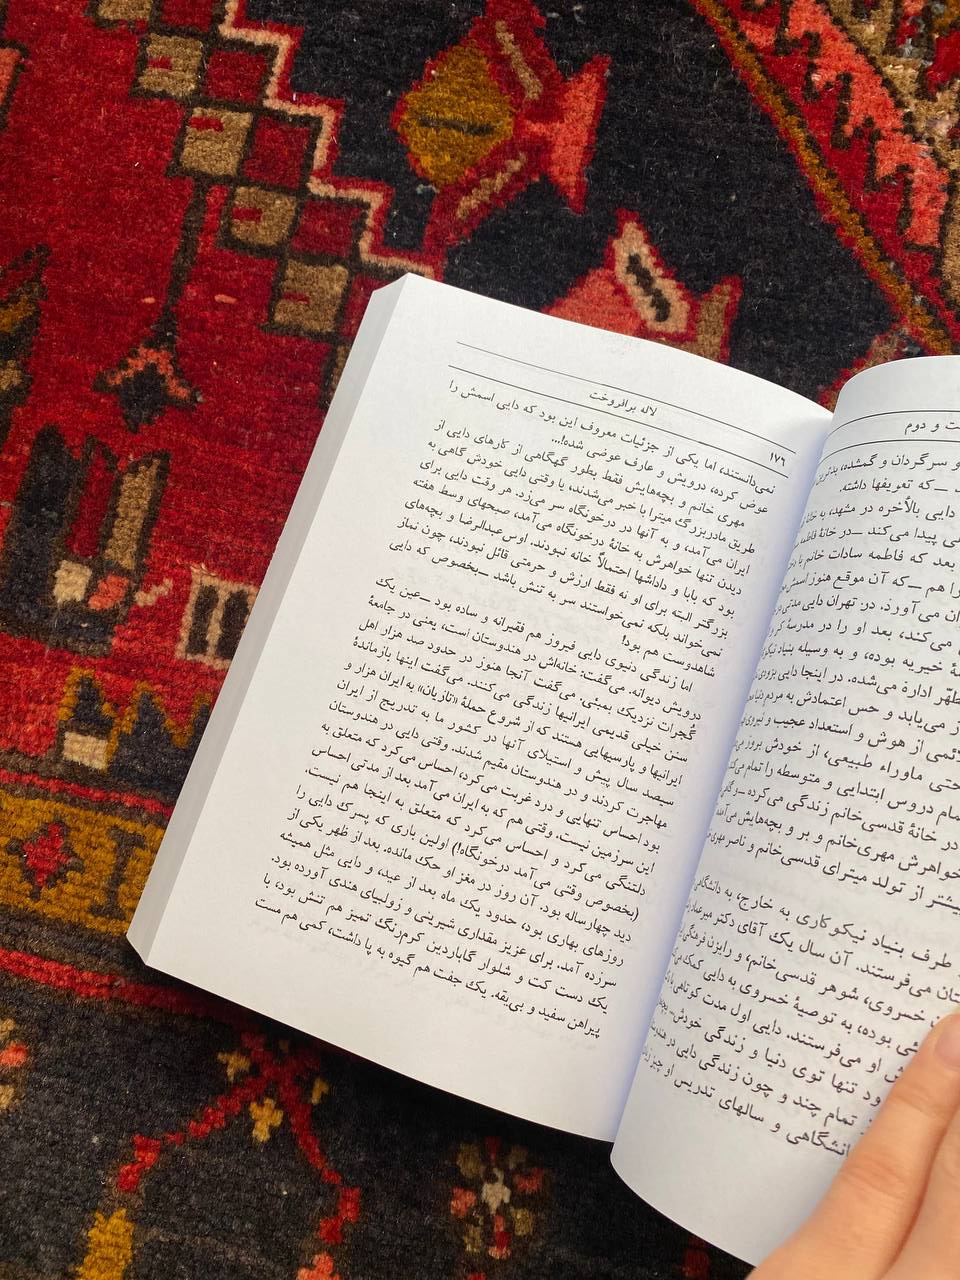 ت و دوم
و سرگردان و گمشده، بدترین
ـ که تعویفها داشته.
دایی بالأخره در مشهد، به خانۀ
پیدا می‌کند ـ در خانۀ فاطمه
بعد که فاطمه سادات خانم با
را هم ـ که آن موقع هنوز اسمش
ان می‌آورد. در تهران دایی مدتی در
می‌کند، بعد او را در مدرسۀ
ۀ خیریه بوده، و به وسیله بنیاد
اداره می‌شده. در اینجا دایی بزودی
ز می‌یابد و حس اعتمادش به مردم دنیا
لائمی از هوش و استعداد عجیب و نیروی
حتی ماوراء طبیعی، از خودش بروز می‌دهد
تمام دروس ابتدایی و متوسطه را تمام می‌کند
در خانۀ قدسی‌خانم زندگی می‌کرده ـ و گاهی
خواهرش مهری‌خانم و بر و بچه‌هایش می‌آمده
بیشتر از تولد میترای قدسی‌خانم و ناصر مهری
طرف بنیاد نیکوکاری به خارج، به دانشگاهی
ستان می‌فرستند. آن سال یک آقای دکتر میرعماد
خسروی، شوهر قدسی‌خانم، و رایزن فرهنگی
شی بوده، به توصیۀ خسروی به دایی کمک می‌کند
ش او می‌فرستند. دایی اول مدت کوتاهی با
ود تنها توی دنیا و زندگی خودش
تمام چند و چون زندگی دایی در هندوستان
انشگاهی و سالهای تدریس او چیز زیادی
۱۷۶ لاله برافروخت
نمی‌دانستند، اما یکی از جزئیات معروف این بود که دایی اسمش را
عوض کرده، درویش و عارف عوضی شده!...
مهری خانم و بچه‌هایش فقط بطور گهگاهی از کارهای دایی از
طریق مادربزرگ میترا با خبر می‌شدند، یا وقتی دایی خودش گاهی به
ایران می‌آمد، و به آنها در درخونگاه سر می‌زد. هر وقت دایی برای
دیدن تنها خواهرش به خانۀ درخونگاه می‌آمد، صبحهای وسط هفته
بود که بابا و داداشها احتمالاً خانه نبودند. اوس عبدالرضا و بچه‌های
بزرگتر البته برای او نه فقط ارزش و حرمتی قائل نبودند، چون نماز
نمی‌خواند بلکه نمی‌خواستند سر به تنش باشد ـ بخصوص که دایی
شاهدوست هم بود!
اما زندگی دنیوی دایی فیروز هم فقیرانه و ساده بود ـ عین یک
درویش دیوانه. می‌گفت: خانه‌اش در هندوستان است، یعنی در جامعۀ
گُجرات نزدیک بمبئی. می‌گفت آنجا هنوز در حدود صد هزار اهل
سنن خیلی قدیمی ایرانیها زندگی می‌کنند. می‌گفت اینها بازماندۀ
ایرانیها و پارسیهایی هستند که از شروع حملۀ «تازیان» به ایران هزار و
سیصد سال پیش و استیلای آنها در کشور ما به تدریج از ایران
مهاجرت کردند و در هندوستان مقیم شدند. وقتی دایی در هندوستان
بود احساس تنهایی و درد غربت می‌کرد، احساس می‌کرد که متعلق به
این سرزمین نیست. وقتی هم که به ایران می‌آمد بعد از مدتی احساس
دلتنگی می‌کرد و احساس می‌کرد که متعلق به اینجا هم نیست.
(بخصوص وقتی می‌آمد درخونگاه!) اولین باری که پسرک دایی را
دید چهارساله بود. آن روز در مغز او حک مانده. بعد از ظهر یکی از
روزهای بهاری بود، حدود یک ماه بعد از عید، و دایی مثل همیشه
سرزده آمد. برای عزیز مقداری شیرینی و زولبیای هندی آورده بود.
یک دست کت و شلوار گاباردین کرم‌رنگ تمیز هم تنش بود، با
پیراهن سفید و بی‌یقه. یک جفت هم گیوه به پا داشت، کمی هم مست